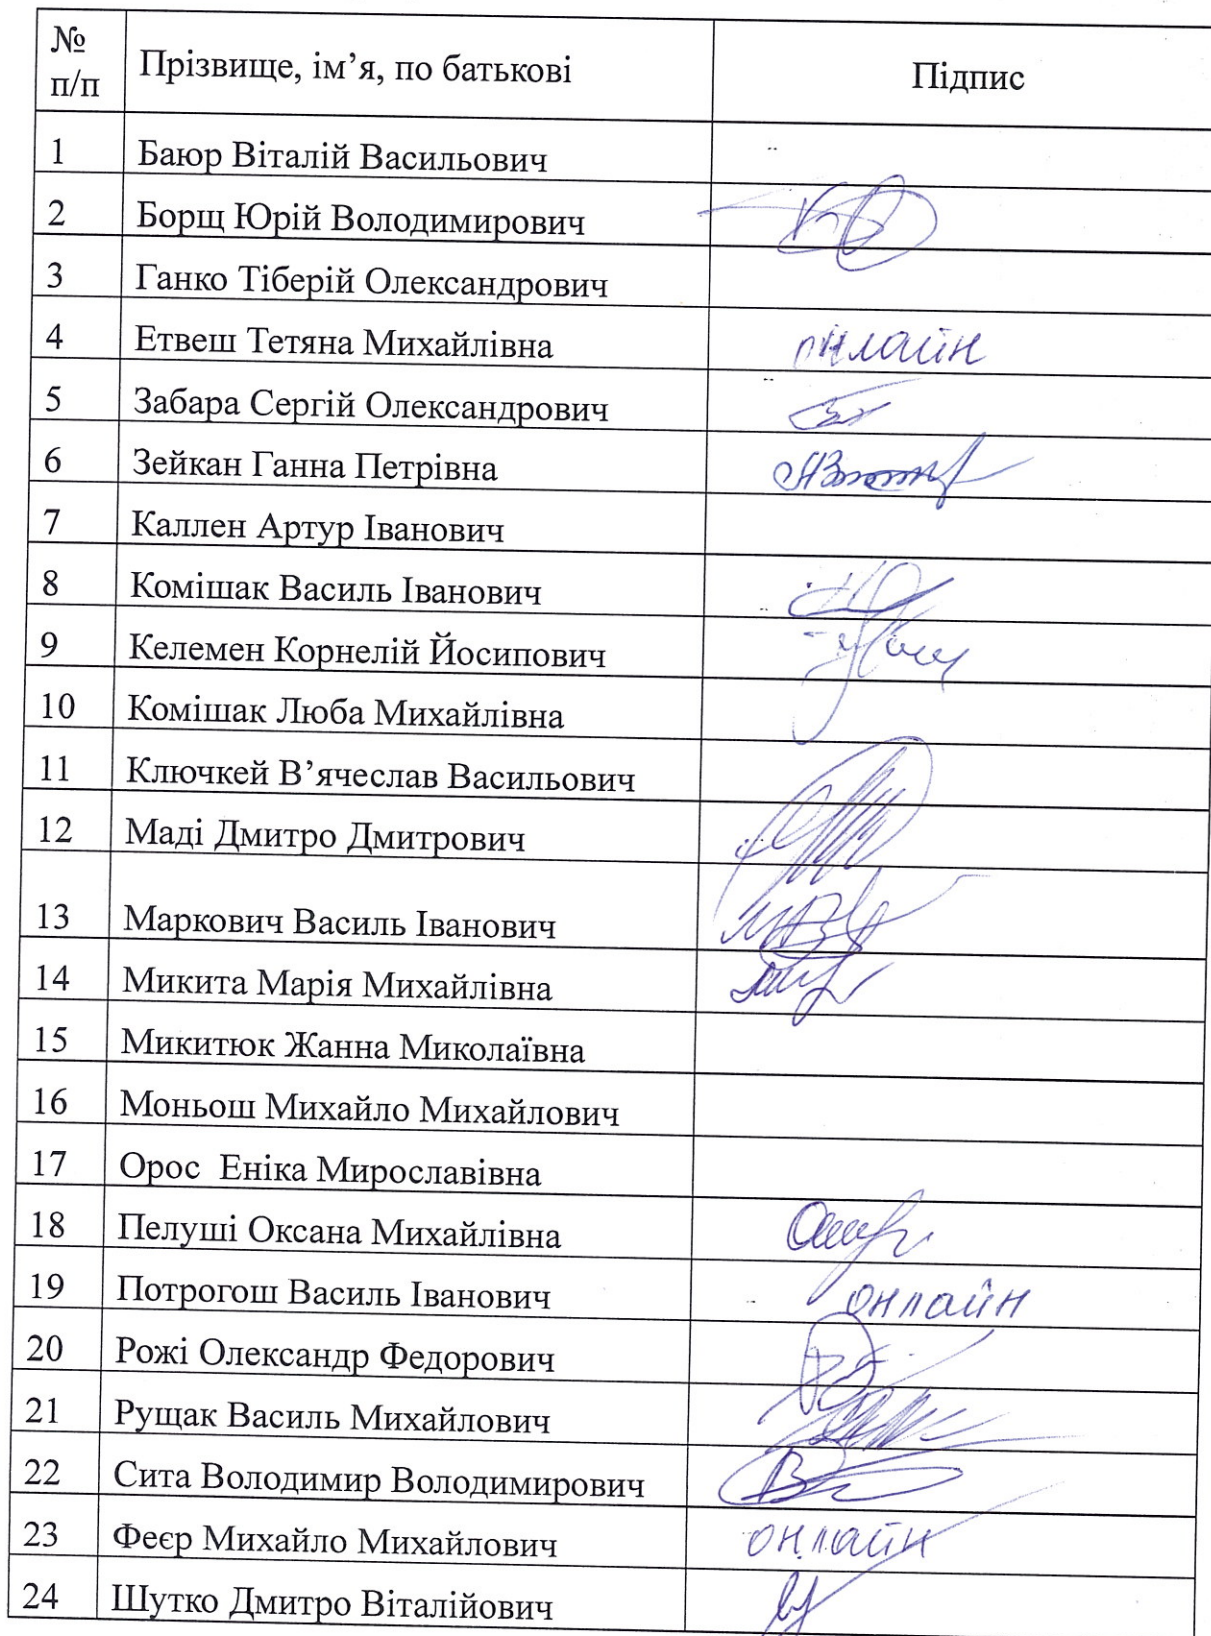 № п/п Прізвище, ім’я, по батькові Підпис
1 Баюр Віталій Васильович
2 Борщ Юрій Володимирович
3 Ганко Тіберій Олександрович
4 Етвеш Тетяна Михайлівна онлайн
5 Забара Сергій Олександрович
6 Зейкан Ганна Петрівна
7 Каллен Артур Іванович
8 Комішак Василь Іванович
9 Келемен Корнелій Йосипович
10 Комішак Люба Михайлівна
11 Ключкей В’ячеслав Васильович
12 Маді Дмитро Дмитрович
13 Маркович Василь Іванович
14 Микита Марія Михайлівна
15 Микитюк Жанна Миколаївна
16 Моньош Михайло Михайлович
17 Орос Еніка Мирославівна
18 Пелуші Оксана Михайлівна
19 Потрогош Василь Іванович онлайн
20 Рожі Олександр Федорович
21 Рущак Василь Михайлович
22 Сита Володимир Володимирович
23 Феєр Михайло Михайлович онлайн
24 Шутко Дмитро Віталійович